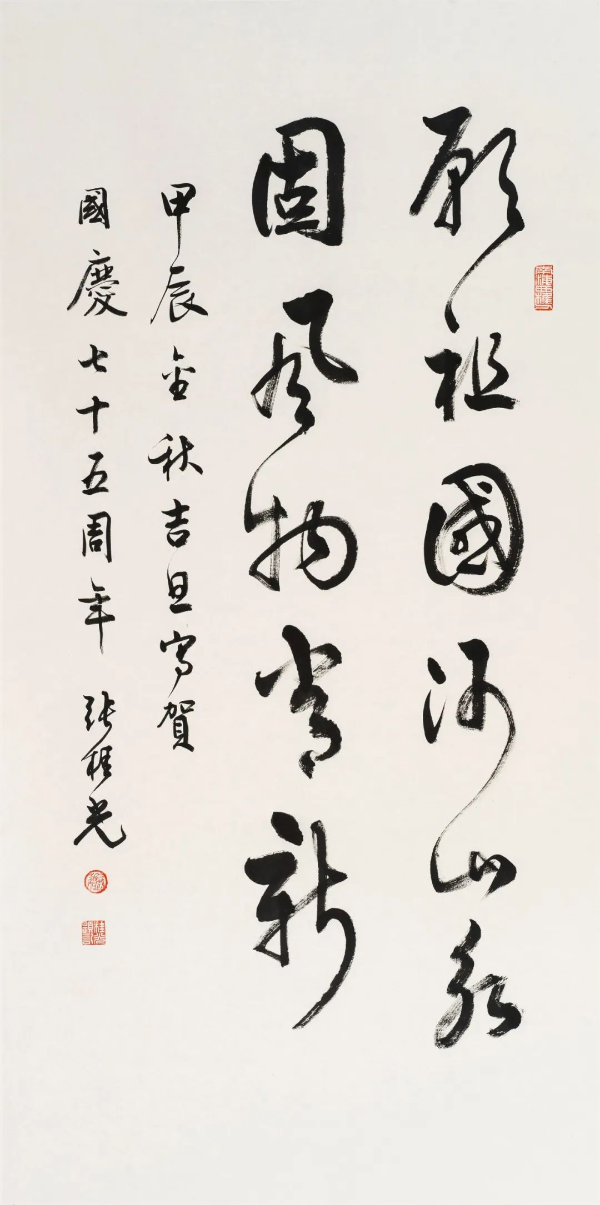 願祖國河山永
固風物常新
甲辰金秋吉旦寫賀
國慶七十五周年 張桂光